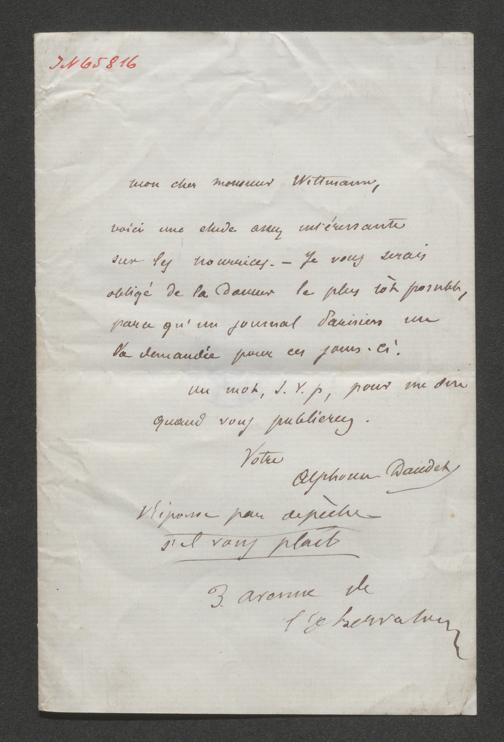 JN 65816
mon cher monsieur Wittmann,
voici une etude assez intéressante
sur les nourrices. – Je vous serais
obligé de la donner le plus tôt possible,
parce qu'un journal Parisien me
l'a demandée pour ces jours-ci.
Un mot, S. V. p, pour me dire
quand vous publierez.
Votre
Alphonse Daudet
Réponse par depêche
s'il vous plait
3 avenue de
l'Observatoire